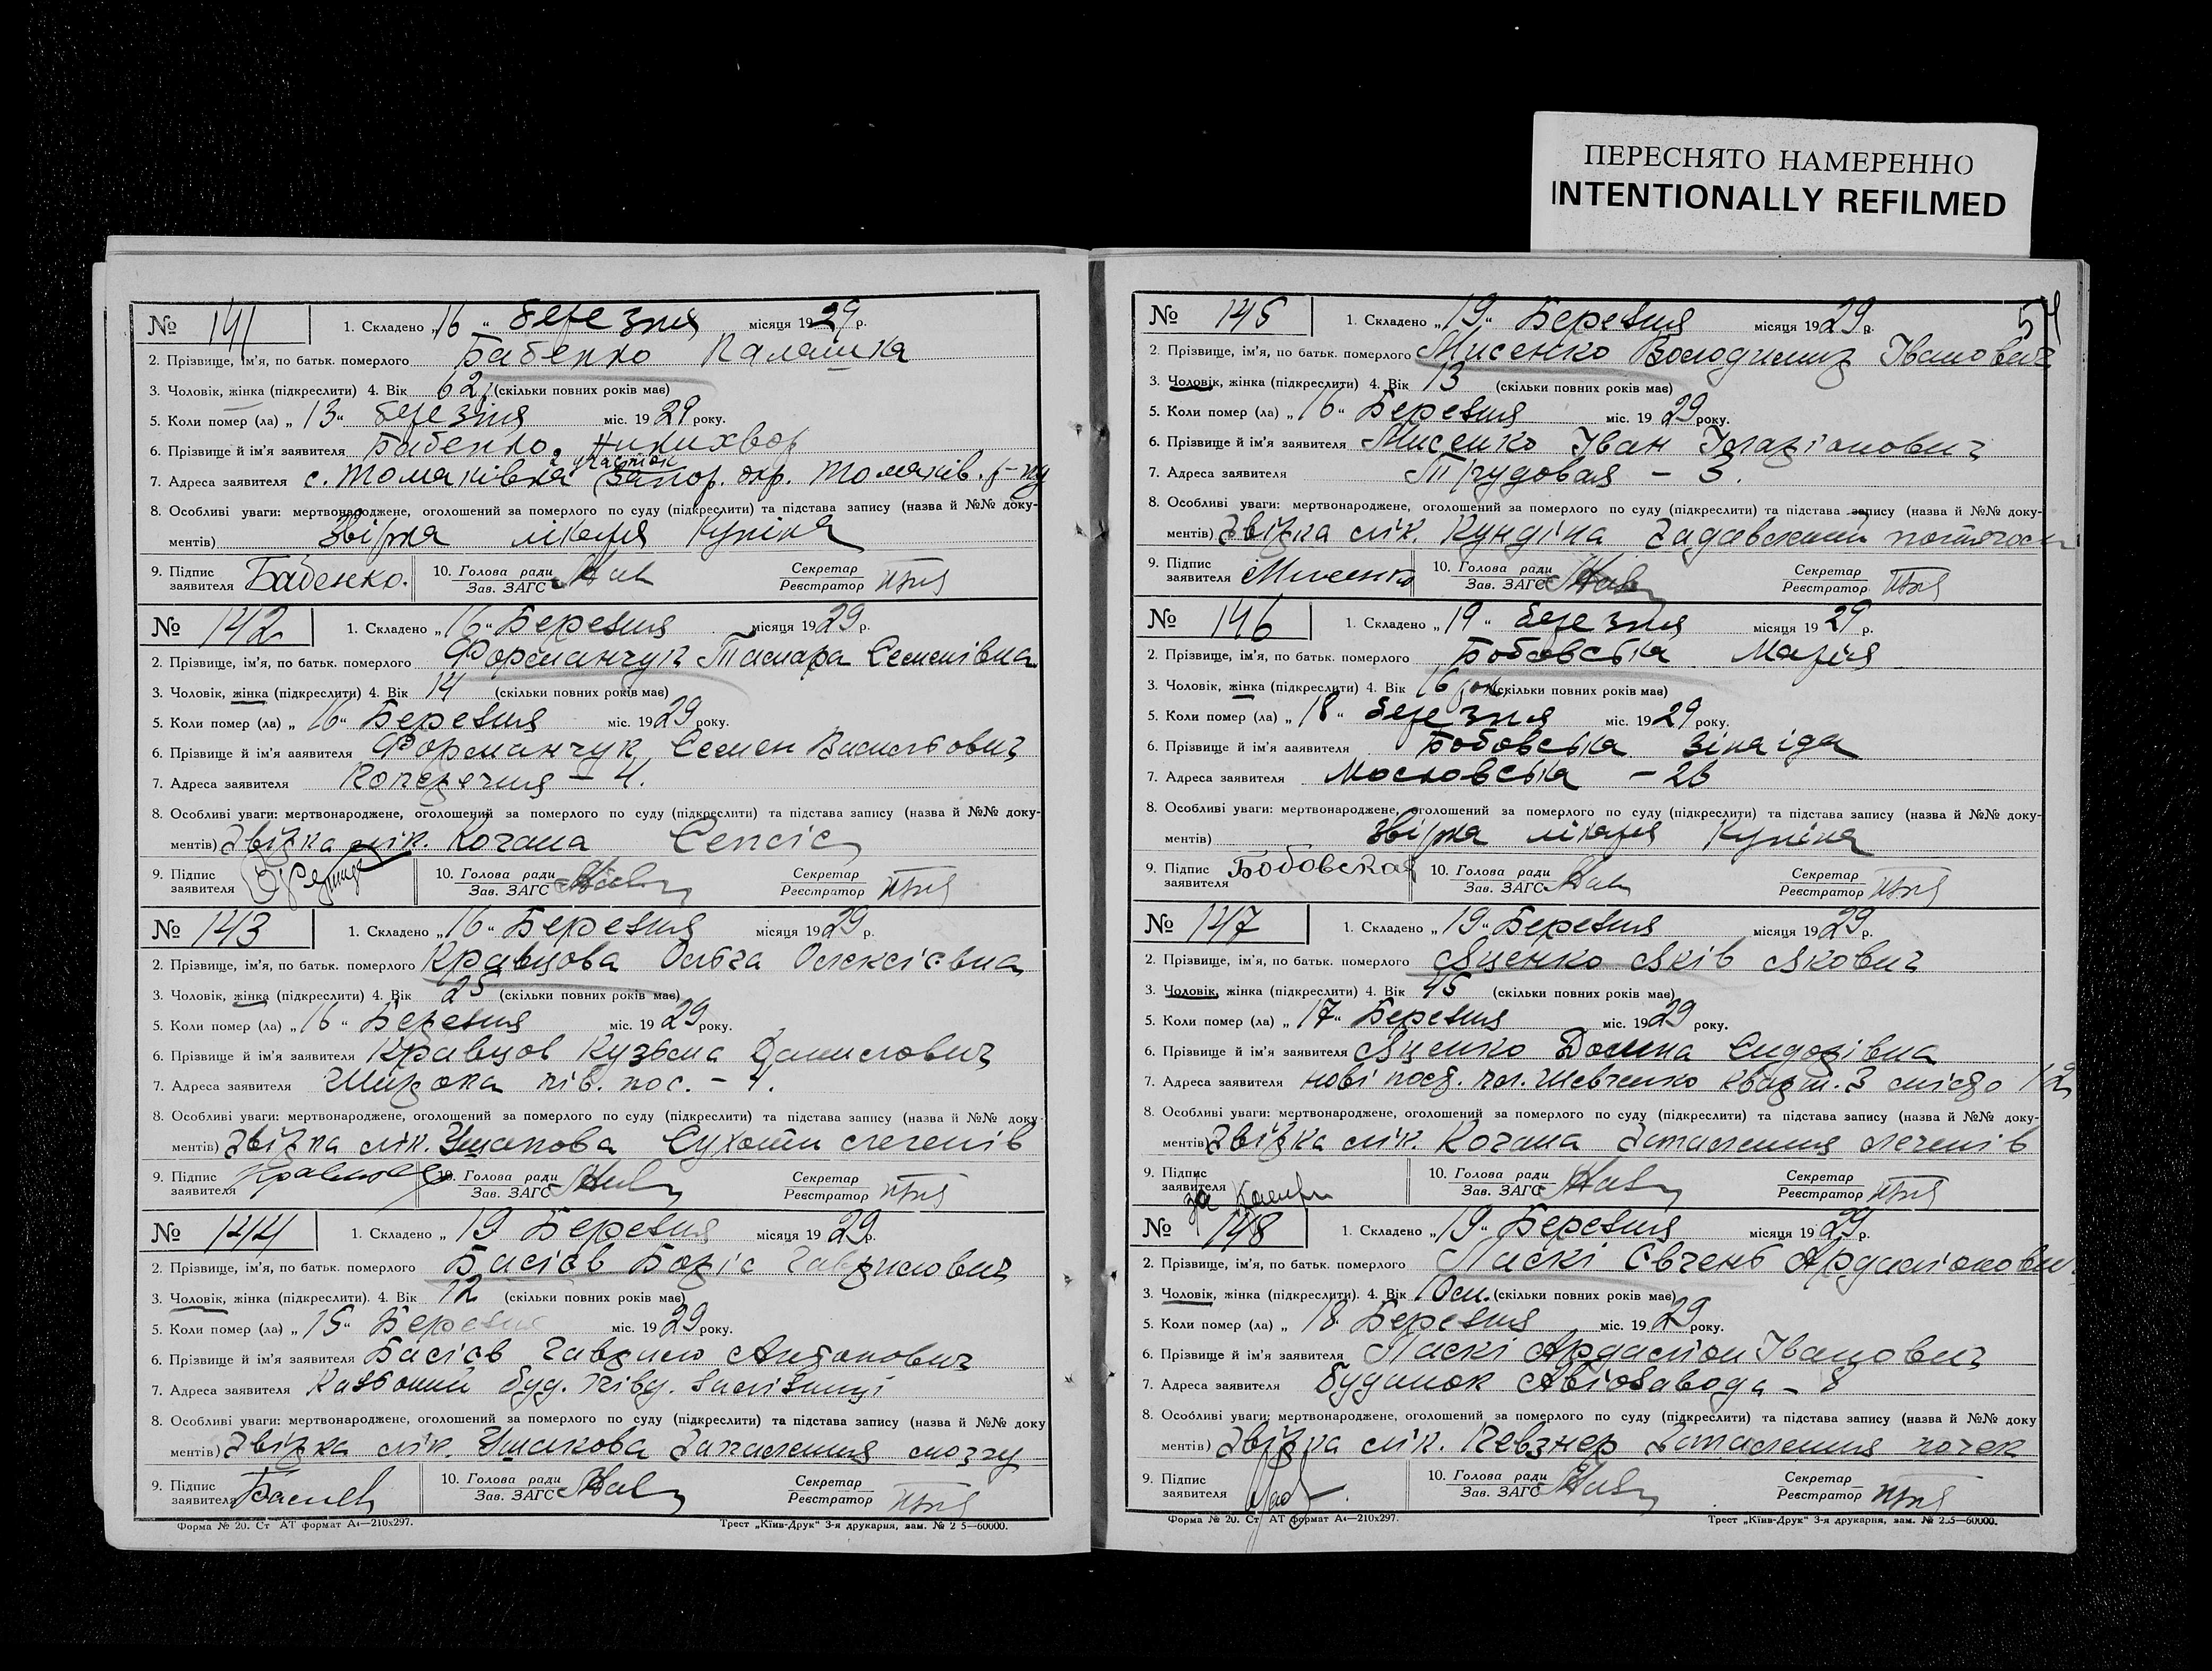 ПЕРЕСНЯТО НАМЕРЕННО
INTENTIONALLY REFILMED
№ 141 1. Складено „16“ березня місяця 1929 р.
2. Прізвище, ім'я, по батьк. померлого Бабенко Палашка
3. Чоловік, жінка (підкреслити) 4. Вік 62 (скільки повних років має)
5. Коли помер (ла) „13“ березня міс. 1929 року.
6. Прізвище й ім'я заявителя Бабенко
7. Адреса заявителя с. Томаківка Запор. окр. Томаків. р-ну
8. Особливі уваги: мертвонароджене, оголошений за померлого по суду (підкреслити) та підстава запису (назва й №№ доку-
ментів) Звірка лікаря Купіна
9. Підпис заявителя Бабенко. 10. Голова ради Зав. ЗАГС Секретар Реєстратор
№ 142 1. Складено „16“ Березня місяця 1929 р.
2. Прізвище, ім'я, по батьк. померлого Форманчук Тамара Семенівна
3. Чоловік, жінка (підкреслити) 4. Вік 14 (скільки повних років має)
5. Коли помер (ла) „16“ Березня міс. 1929 року.
6. Прізвище й ім'я заявителя Форманчук Семен Васильович
7. Адреса заявителя Поперечня – 4.
8. Особливі уваги: мертвонароджене, оголошений за померлого по суду (підкреслити) та підстава запису (назва й №№ доку-
ментів) Звірка лік. Когана Сепсіс
9. Підпис заявителя 10. Голова ради Зав. ЗАГС Секретар Реєстратор
№ 143 1. Складено „16“ Березня місяця 1929 р.
2. Прізвище, ім'я, по батьк. померлого Кравцова Ольга Олексієвна
3. Чоловік, жінка (підкреслити) 4. Вік 25 (скільки повних років має)
5. Коли помер (ла) „16“ Березня міс. 1929 року.
6. Прізвище й ім'я заявителя Кравцов Кузьма Данилович
7. Адреса заявителя Широка пів. пос. –
8. Особливі уваги: мертвонароджене, оголошений за померлого по суду (підкреслити) та підстава запису (назва й №№ доку-
ментів) Звірка лік. Ушакова Сухоти легенів
9. Підпис заявителя 10. Голова ради Зав. ЗАГС Секретар Реєстратор
№ 144 1. Складено „19 Березня місяця 1929 р.
2. Прізвище, ім'я, по батьк. померлого Басієв Боріс Гаврилович
3. Чоловік, жінка (підкреслити). 4. Вік 12 (скільки повних років має)
5. Коли помер (ла) „15“ Березня міс. 1929 року.
6. Прізвище й ім'я заявителя Басієв Гаврило Антонович
7. Адреса заявителя буд. Півд. Залізниці
8. Особливі уваги: мертвонароджене, оголошений за померлого по суду (підкреслити) та підстава запису (назва й №№ доку
ментів) Звірка лік. Ушакова Запалення мозгу
9. Підпис заявителя Басиев 10. Голова ради Зав. ЗАГС Секретар Реєстратор
Форма № 20. Ст АТ формат А4—210x297. Трест „Київ-Друк“ 3-я друкарня, зам. № 2 5—60000.
54
№ 145 1. Складено „19“ Березня місяця 1929 р.
2. Прізвище, ім'я, по батьк. померлого Мисенко Володимир Іванович
3. Чоловік, жінка (підкреслити) 4. Вік 13 (скільки повних років має)
5. Коли помер (ла) „16“ Березня міс. 1929 року.
6. Прізвище й ім'я заявителя Мисенко Іван Іларіонович
7. Адреса заявителя Трудовая – 3.
8. Особливі уваги: мертвонароджене, оголошений за померлого по суду (підкреслити) та підстава запису (назва й №№ доку-
ментів) Звірка лік. Кундіна Задавлений потягом
9. Підпис заявителя Мисенко 10. Голова ради Зав. ЗАГС Секретар Реєстратор
№ 146 1. Складено „19“ березня місяця 1929 р.
2. Прізвище, ім'я, по батьк. померлого Бобовська Марія
3. Чоловік, жінка (підкреслити) 4. Вік 16 рок (скільки повних років має)
5. Коли помер (ла) „18“ березня міс. 1929 року.
6. Прізвище й ім'я заявителя Бобовська Зінаіда
7. Адреса заявителя Московська – 26
8. Особливі уваги: мертвонароджене, оголошений за померлого по суду (підкреслити) та підстава запису (назва й №№ доку-
ментів) Звірка лікаря Купіна
9. Підпис заявителя Бобовская 10. Голова ради Зав. ЗАГС Секретар Реєстратор
№ 147 1. Складено „19“ Березня місяця 1929 р.
2. Прізвище, ім'я, по батьк. померлого Яценко Яків Якович
3. Чоловік, жінка (підкреслити) 4. Вік 45 (скільки повних років має)
5. Коли помер (ла) „17“ Березня міс. 1929 року.
6. Прізвище й ім'я заявителя Яценко Домна Сидорівна
7. Адреса заявителя нові пос. Шевченко кварт. 3 місце 12
8. Особливі уваги: мертвонароджене, оголошений за померлого по суду (підкреслити) та підстава запису (назва й №№ доку-
ментів) Звірка лік. Когана Запалення легенів
9. Підпис заявителя за 10. Голова ради Зав. ЗАГС Секретар Реєстратор
№ 148 1. Складено „19“ Березня місяця 1929 р.
2. Прізвище, ім'я, по батьк. померлого Ласкі Євгень Ардаліонович
3. Чоловік, жінка (підкреслити). 4. Вік 10 м. (скільки повних років має)
5. Коли помер (ла) „18. Березня міс. 1929 року.
6. Прізвище й ім'я заявителя Ласкі Ардаліон Іванович
7. Адреса заявителя Будинок Авіозавода – 8
8. Особливі уваги: мертвонароджене, оголошений за померлого по суду (підкреслити) та підстава запису (назва й №№ доку
ментів) Звірка лік. Певзнер Запалення почек
9. Підпис заявителя 10. Голова ради Зав. ЗАГС Секретар Реєстратор
Форма № 20. Ст АТ формат А4—210x297. Трест „Київ-Друк“ 3-я друкарня, зам. № 2.5—60000.